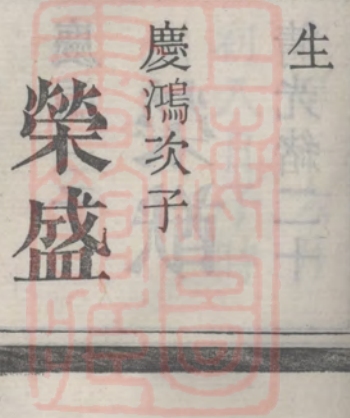 生
慶鴻次子
榮盛